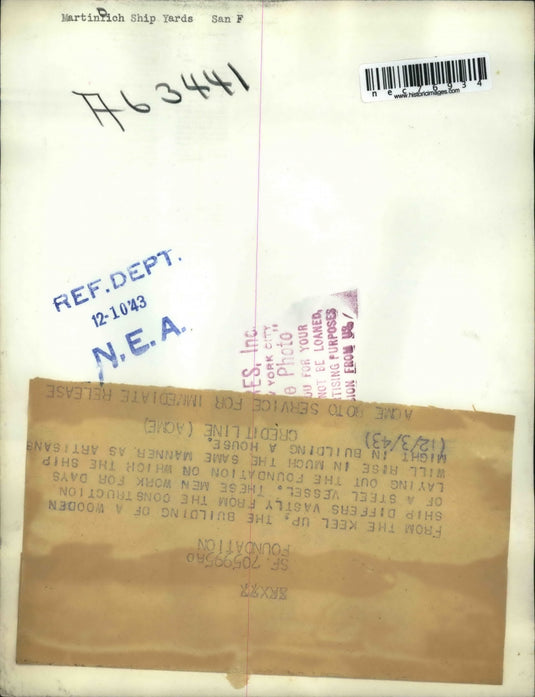 Martinrich Ship Yards San F
A63441
www.historicimages.com
REF. DEPT.
12-10'43
N.E.A.
ES, Inc.
YORK CITY
e Photo"
FOR YOUR
NOT BE LOANED,
TISING PURPOSES
ION FROM
SF 705995RO
FOUNDATION
FROM THE KEEL UP, THE BUILDING OF A WOODEN
SHIP DIFFERS VASTLY FROM THE CONSTRUCTION
OF A STEEL VESSEL. THESE MEN WORK FOR DAYS
LAYING OUT THE FOUNDATION ON WHICH THE SHIP
WILL RISE IN MUCH THE SAME MANNER AS ARTISANS
MIGHT IN BUILDING A HOUSE.
(12/3/43)
CREDIT LINE (ACME)
ACME ROTO SERVICE FOR IMMEDIATE RELEASE